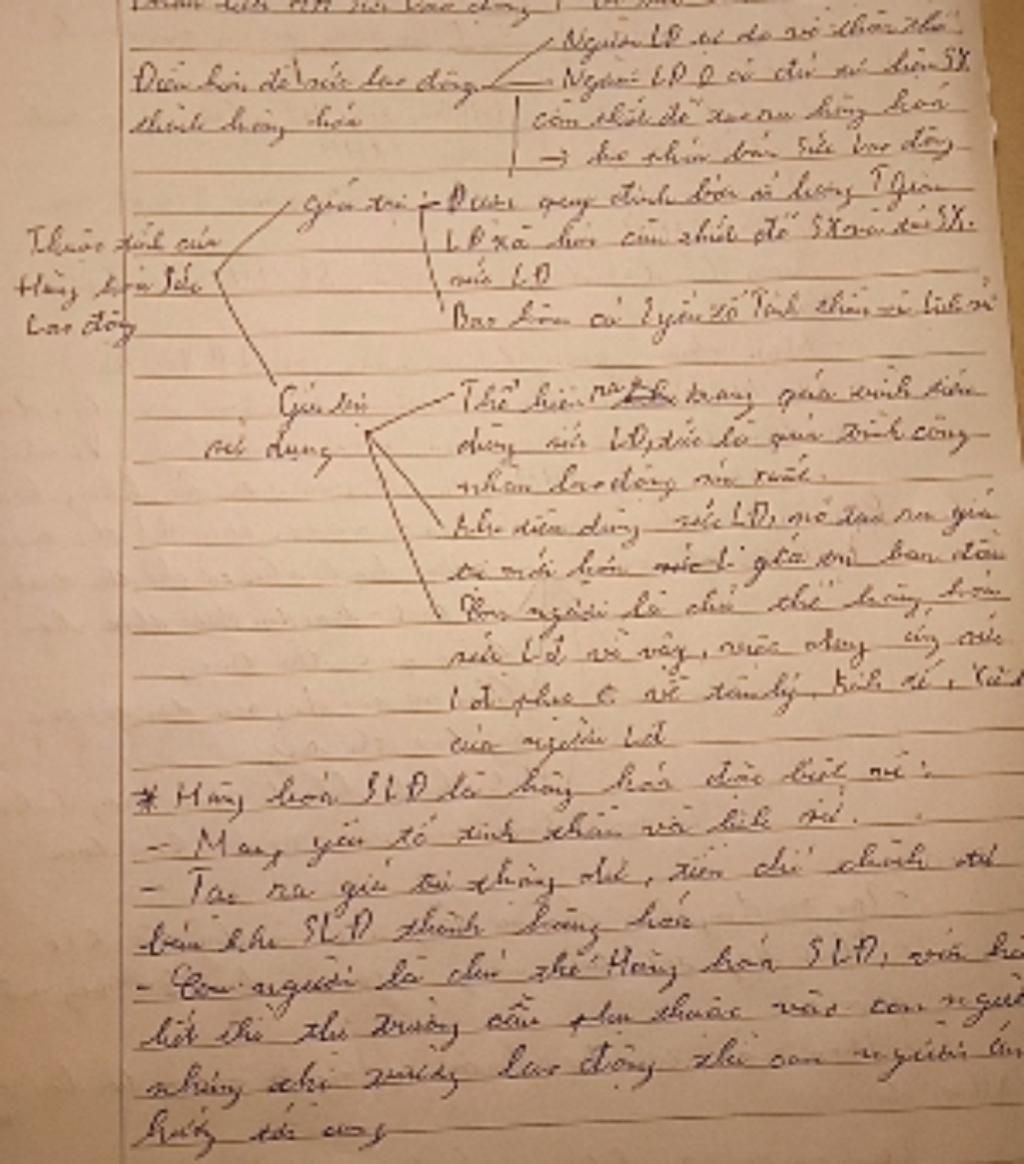 Điều kiện để sức lao động
thành hàng hóa
Người LĐ tự do về thân thể
Người LĐ có đủ tư liệu SX
cần thiết để tạo ra hàng hoá
→ họ phải bán Sức Lao động
Thuộc tính của
Hàng hoá Sức
Lao động
giá trị
Được quy định bởi số lượng T.Gian
LĐ xã hội cần thiết để SX và tái SX.
sức LĐ
Bao hàm cả yếu tố Tinh thần và lịch sử
Giá trị
sử dụng
Thể hiện ra trong quá trình tiêu
dùng sức LĐ, tức là quá trình công
nhân lao động sản xuất.
Khi tiêu dùng sức LĐ, nó tạo ra giá
trị mới lớn giá trị ban đầu
Con người là chủ thể hàng hoá
sức LĐ vì vậy, việc cung ứng sức
LĐ phụ t về tâm lý, kinh tế,
của người LĐ
* Hàng hoá SLĐ là hàng hoá đặc biệt vì:
- Mang yếu tố tinh thần và lịch sử.
- Tạo ra giá trị thặng dư,
bản khi SLĐ thành hàng hoá
- Con người là chủ thể Hàng hoá SLĐ, với
hết thì thị trường cầu phụ thuộc vào con người
nhưng thị trường lao động thì con người
hưởng tới cung